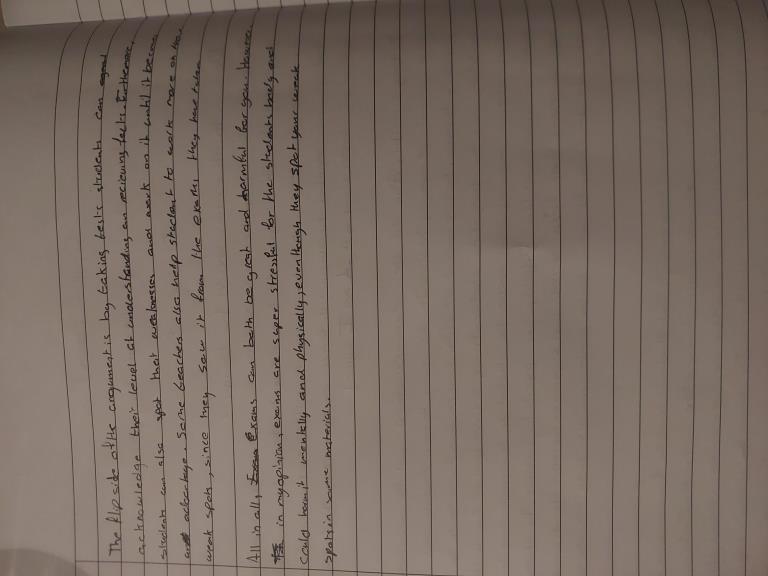 The flip side of the argument is by taking tests students can
acknowledge their level at understanding an recieving facts. Furthermore,
students can also spot that weaknesses and work on it until it become
advantage. Some teachers also help student to work more on
weak spots, since they saw it from the exams they have taken
All in all, exams can both be great and harmful for you. However,
in my opinion, exams are super stressful for the students body and
could harm it mentally and physically, even though they spot your weak
spots in some materials.